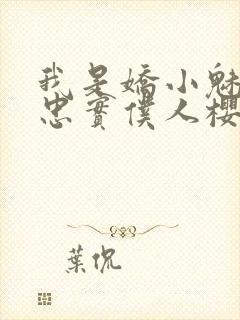 我是嬌小魅
忠實僕人櫻
葉侃